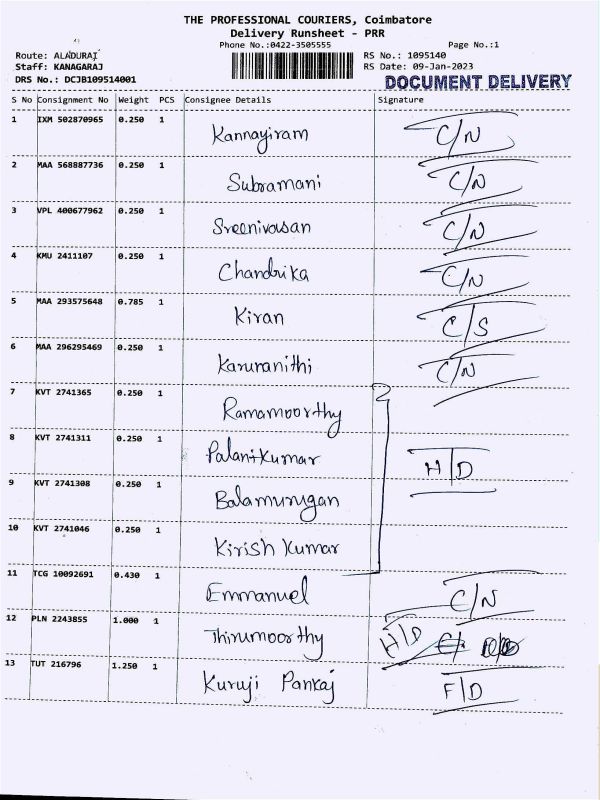 THE PROFESSIONAL COURIERS, Coimbatore
Delivery Runsheet - PRR
Phone No.:0422-3505555 Page No.:1
Route: ALADURAI RS No.: 1095140
Staff: KANAGARAJ RS Date: 09-Jan-2023
DRS No.: DCJB109514001 DOCUMENT DELIVERY
S No Consignment No Weight PCS Consignee Details Signature
1 IXM 502870965 0.250 1 Kannayiram C/N
2 MAA 568887736 0.250 1 Subramani C/N
3 VPL 400677962 0.250 1 Sreenivasan C/N
4 KMU 2411107 0.250 1 Chandrika C/N
5 MAA 293575648 0.785 1 Kiran C/S
6 MAA 296295469 0.250 1 Karuranithi C/N
7 KVT 2741365 0.250 1 Ramamoorthy
8 KVT 2741311 0.250 1 Palanikumar H/D
9 KVT 2741308 0.250 1 Balamurugan
10 KVT 2741046 0.250 1 Kirish Kumar
11 TCG 10092691 0.430 1 Emmanuel C/N
12 PLN 2243855 1.000 1 Thirumoorthy H/D
13 TUT 216796 1.250 1 Kuruji Pankaj F/D